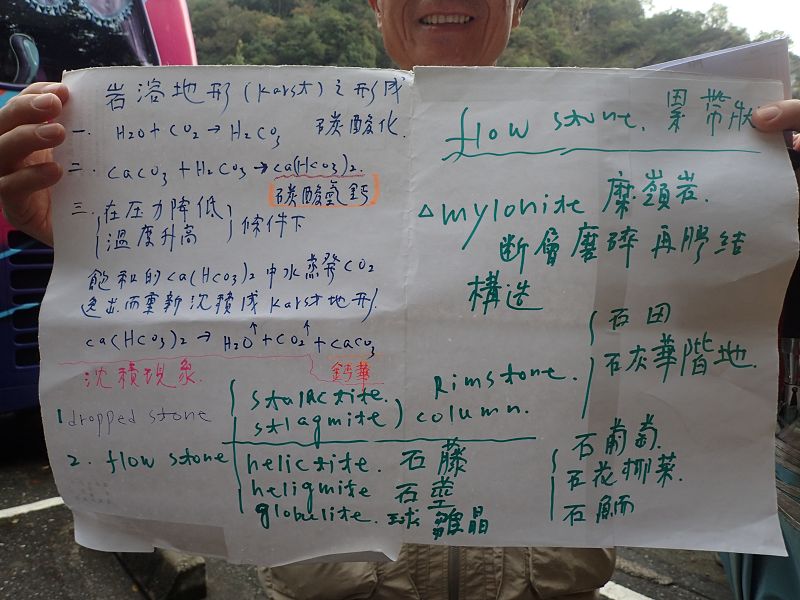 岩溶地形(karst)之形成
一. H2O + CO2 → H2CO3 碳酸化
二. CaCO3 + H2CO3 → Ca(HCO3)2.
碳酸氫鈣
三. 在压力降低
溫度升高 條件下
飽和的Ca(HCO3)2中水蒸發CO2
逸出而重新沉積成Karst地形.
Ca(HCO3)2 → H2O↑ + CO2↑ + CaCO3
沈積現象. 鈣華
1 dropped stone
stalactite.
stlagmite) column.
2. flow stone
helictite. 石藤
heligmite 石
globulite. 球雛晶
flow stone. 累帶狀
△ mylonite 糜嶺岩.
断層磨碎再膠結
構造
Rimstone.
石田
石灰華階地.
石葡萄.
石花椰菜.